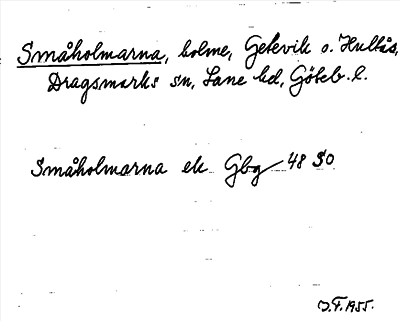 Småholmarna, holme, Getevik o. Hultås,
Dragsmarks sn, Lane hd, Göteb. l.
Småholmarna ek Gbg 48 SO
J.F. 1955.